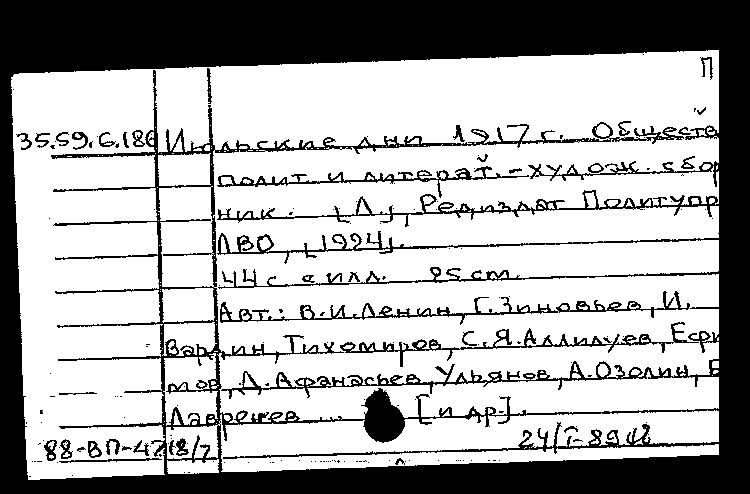 П
35.59.6.186 Июльские дни 1917 г. Обществ
полит и литерат.-худож. сбор
ник. [Л.], Редиздат Политупр
ЛВО, [1924].
44 с. с илл. 25 cm.
Авт.: В.И.Ленин, Г.Зиновьев, И.
Вардин, Тихомиров, С.Я.Аллилуев, Ефи
мов, Д.Афанасьев, Ульянов, А.Озолин,
Лаврешев ... [и др.].
88-ВП-4718/7 24/I-89